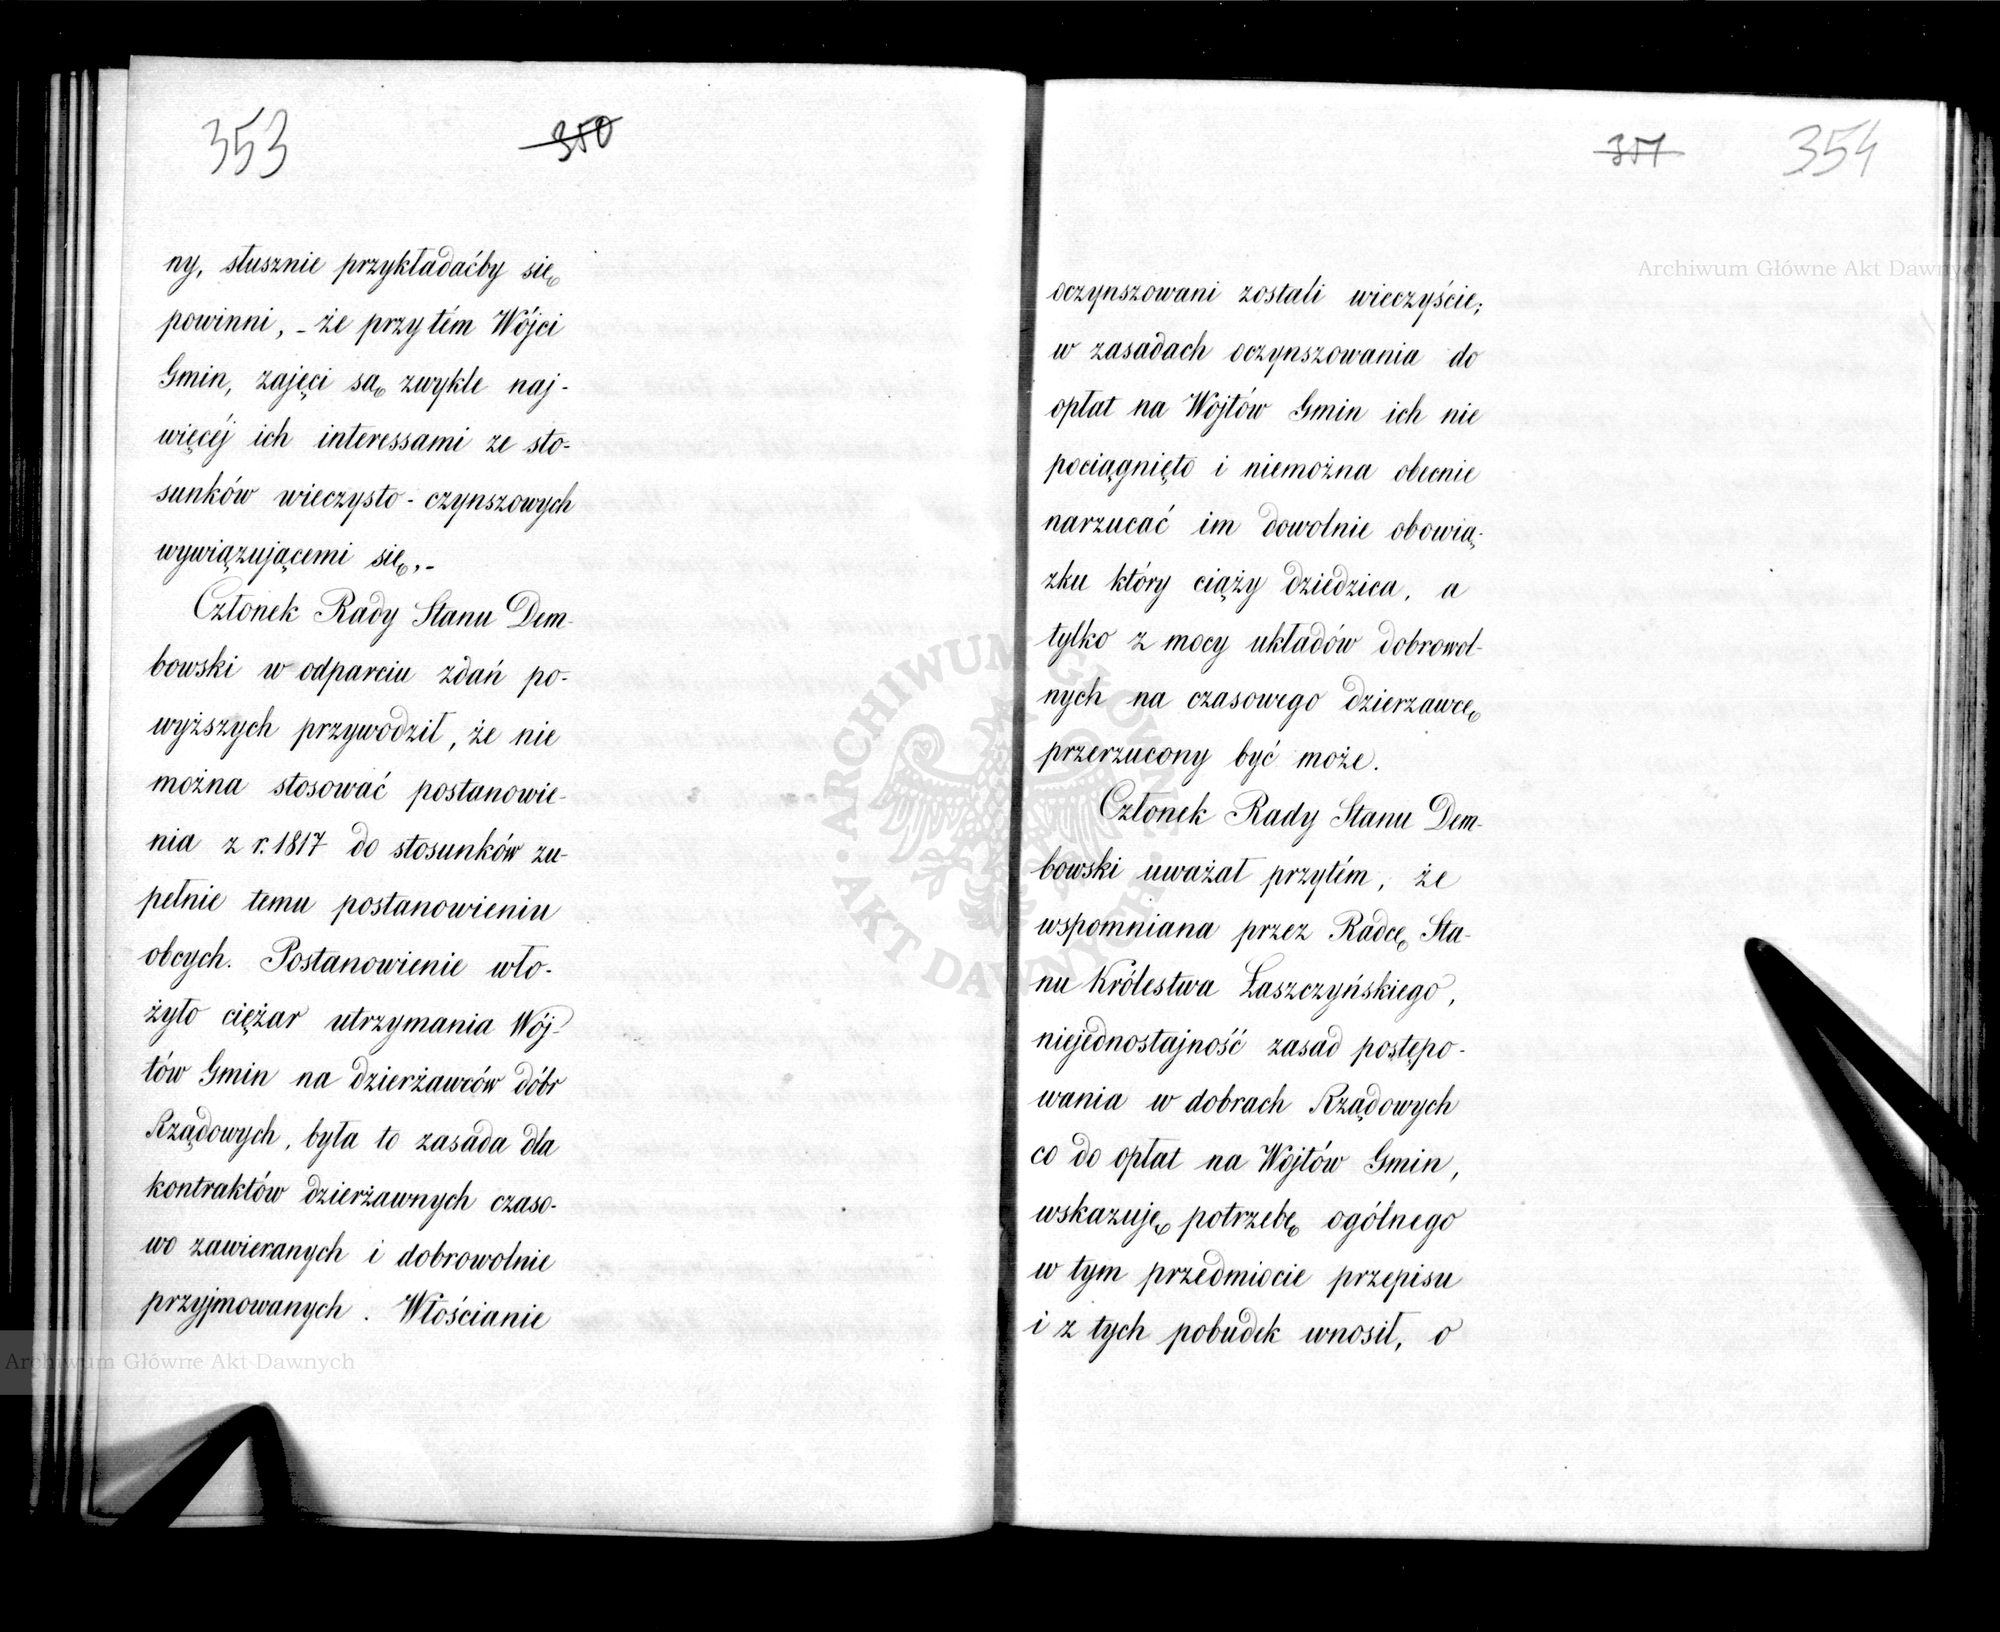 353
350
ny, słusznie przykładaćby się
powinni, - że przytém Wójci
Gmin, zajęci są zwykle naj-
więcéj ich interessami ze sto-
sunków wieczysto-czynszowych
wywiązującemi się,-
Członek Rady Stanu Dem-
bowski w odparciu zdań po-
wyższych przywodził, że nie
można stosować postanowie-
nia z r. 1817 do stosunków zu-
pełnie temu postanowieniu
obcych. Postanowienie wło-
żyło ciężar utrzymania Wój-
tów Gmin na dzierżawców dóbr
Rządowych, była to zasada dla
kontraktów dzierżawnych czaso-
wo zawieranych i dobrowolnie
przyjmowanych. Włościanie
351
354
oczynszowani zostali wieczyście;
w zasadach oczynszowania do
opłat na Wójtów Gmin ich nie
pociągnięto i niemożna obecnie
narzucać im dowolnie obowią-
zku który ciąży dziedzica, a
tylko z mocy układów dobrowol-
nych na czasowego dzierzawcę
przerzucony być może.
Członek Rady Stanu Dem-
bowski uważał przytém, że
wspomniana przez Radcę Sta-
nu Królestwa Łaszczyńskiego,
niejednostajność zasad postępo-
wania w dobrach Rządowych
co do opłat na Wójtów Gmin,
wskazuję potrzebę ogólnego
w tym przedmiocie przepisu
i z tych pobudek wnosił, o
Archiwum Główne Akt Dawnych
Archiwum Główne Akt Dawnych
ARCHIWUM GŁÓWNE · AKT DAWNYCH ·